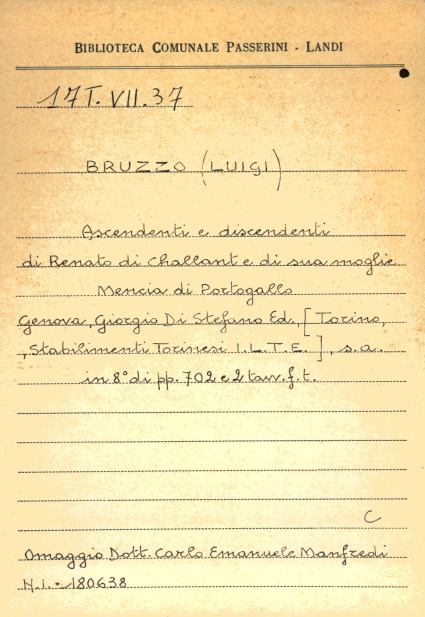 BIBLIOTECA COMUNALE PASSERINI - LANDI
17T.VII.37
BRUZZO (LUIGI)
Ascendenti e discendenti
di Renato di Challant e di sua moglie
Mencia di Portogallo
Genova, Giorgio Di Stefano Ed., [Torino,
, Stabilimenti Torinesi I.L.T.E.], s.a.
in 8° di pp. 702 e 2 tavv. f. t.
C
Omaggio Dott. Carlo Emanuele Manfredi
N.i. - 180638